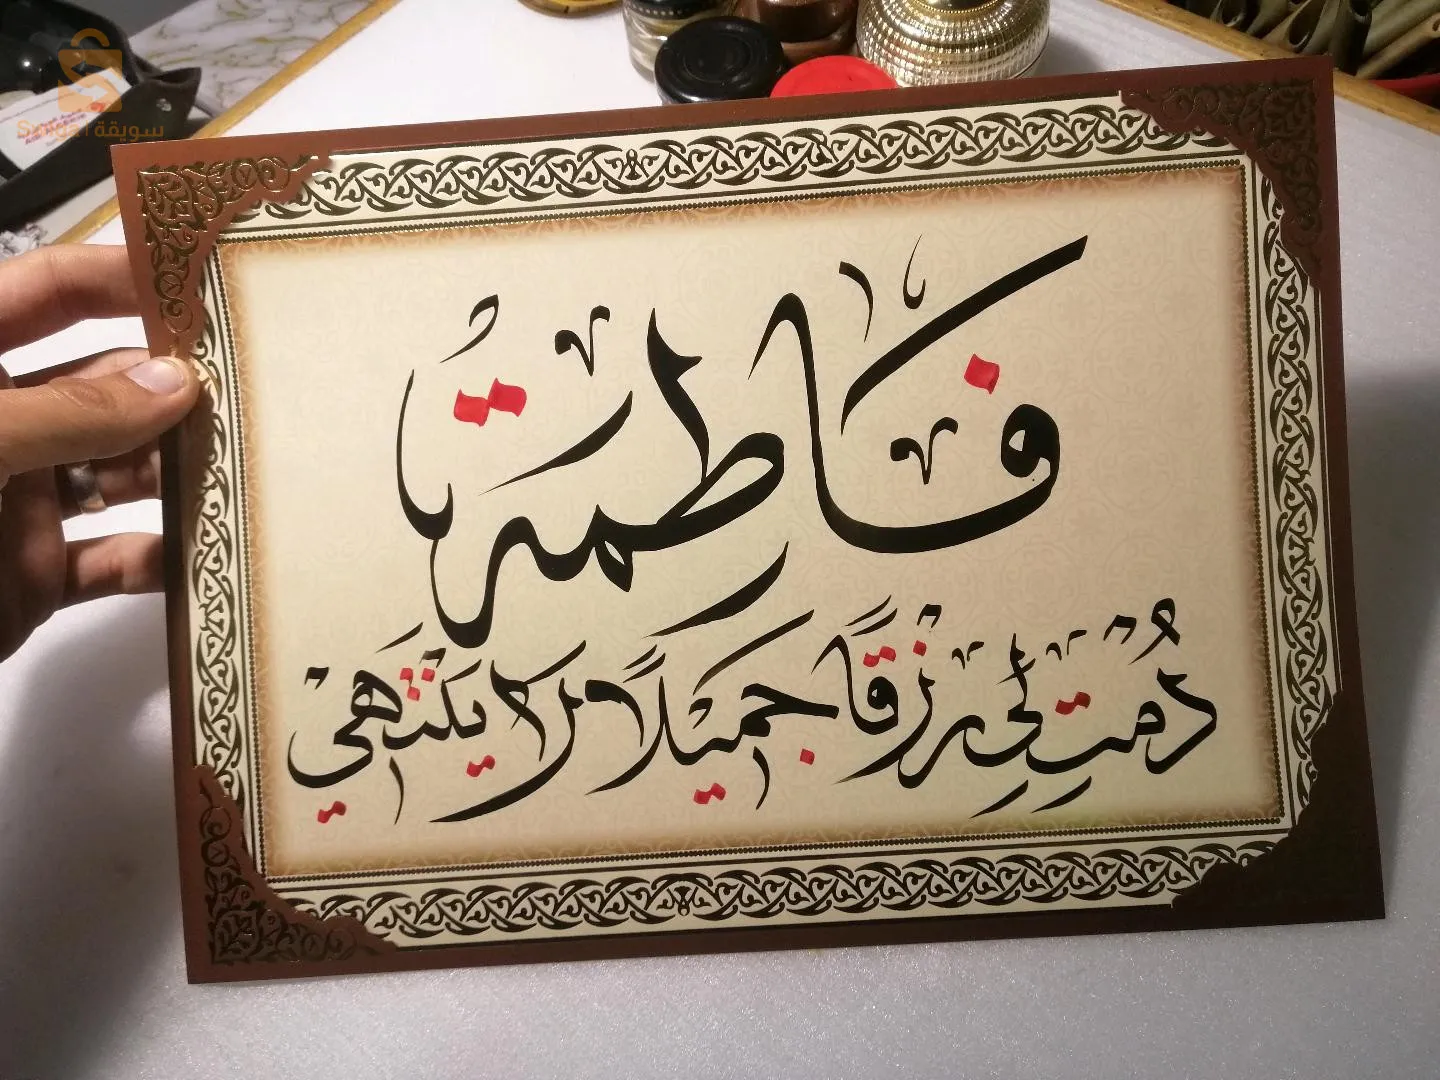 سويقة
فاطمة
دُمتِ لي رزقًا جميلًا لا ينتهي